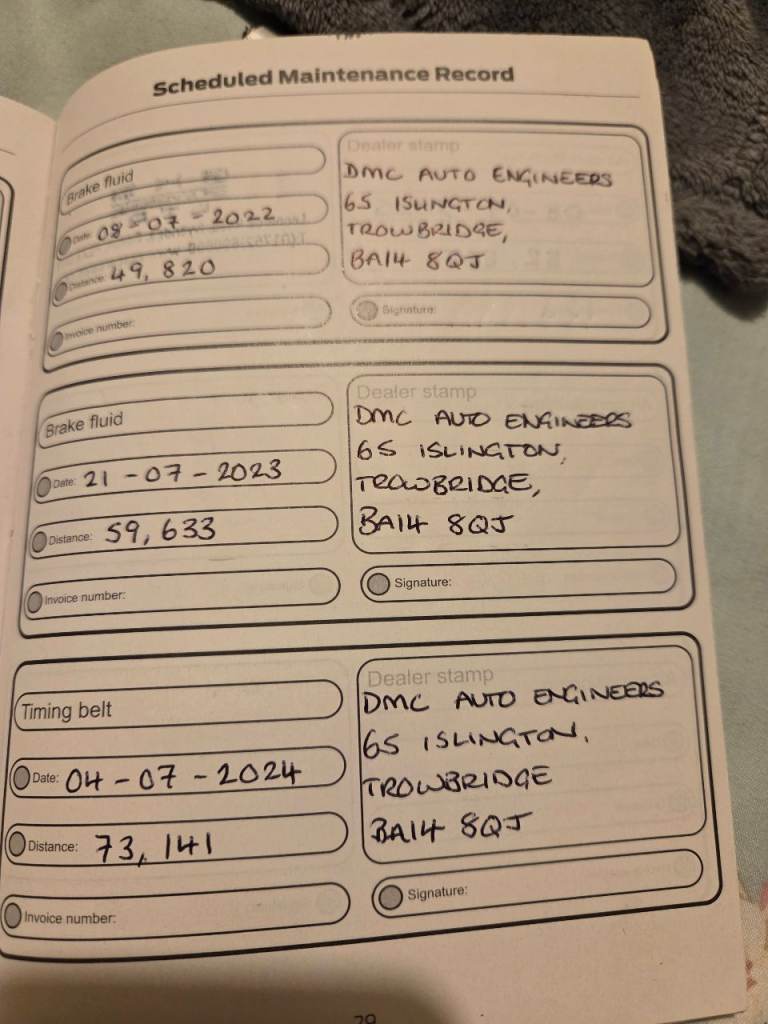 Scheduled Maintenance Record
Brake fluid
Date: 08-07-2022
Distance: 49,820
Invoice number:
Dealer stamp
DMC AUTO ENGINEERS
65 ISLINGTON,
TROWBRIDGE,
BA14 8QJ
Signature:
Brake fluid
Date: 21-07-2023
Distance: 59,633
Invoice number:
Dealer stamp
DMC AUTO ENGINEERS
65 ISLINGTON,
TROWBRIDGE,
BA14 8QJ
Signature:
Timing belt
Date: 04-07-2024
Distance: 73,141
Invoice number:
Dealer stamp
DMC AUTO ENGINEERS
65 ISLINGTON,
TROWBRIDGE
BA14 8QJ
Signature: